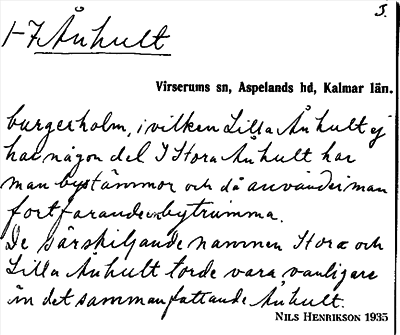 3.
1-7 Ånhult
Virserums sn, Aspelands hd, Kalmar län.
burgerholm, i vilken Lilla Ånhult ej
har någon del. I Stora Ånhult har
man bystämmor och då använder man
fortfarande bytrumma.
De särskiljande namnen Stora och
Lilla Ånhult torde vara vanligare
än det sammanfattande Ånhult.
NILS HENRIKSON 1935